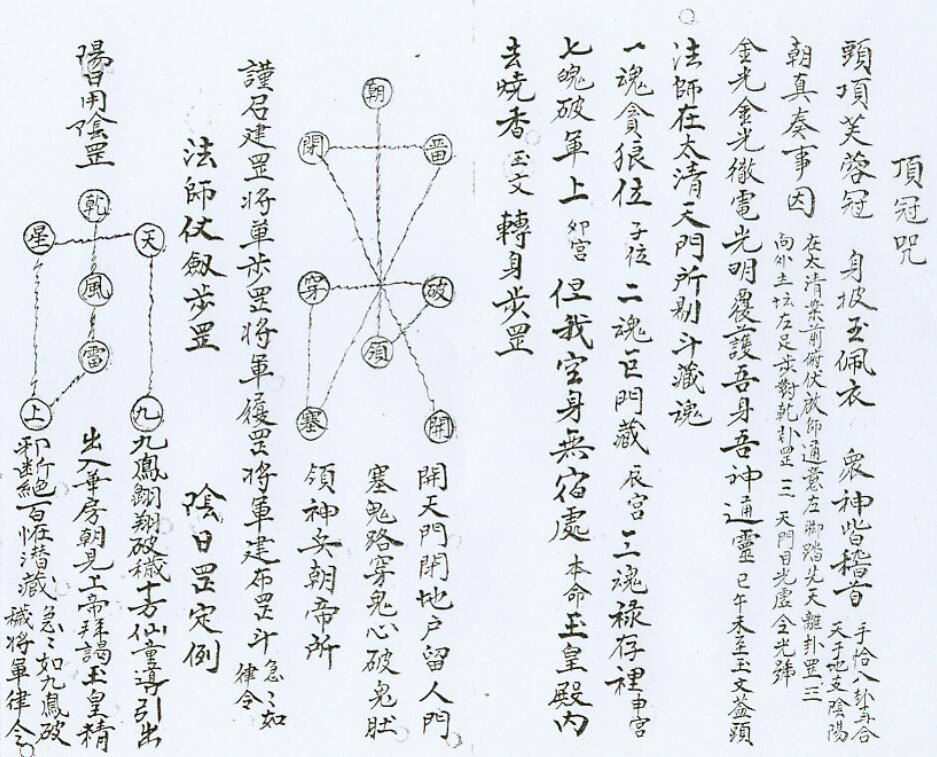 頂冠咒
頭頂芙蓉冠 身披玉佩衣 眾神皆稽首 手恰八卦再合
天子地支陰陽
朝真奏事因 在太清案前俯伏放師通意左腳踏先天離卦罡三
向外主坛左足步對乾卦罡三 天門日光虛合光號
金光金光徹電光明覆護吾身吾神通靈 巳午未至玉文蓋頭
法師在太清天門所剔斗藏魂
一魂貪狼位 子位 二魂巨門藏 辰宮 三魂祿存裡 申宮
七魄破軍上 卯宮 但我空身無宿處 本命玉皇殿內
去燒香 玉文 轉身步罡
朝
閉 留
穿 破
領
塞 開
開天門閉地户留人門
塞鬼路穿鬼心破鬼肚
領神兵朝帝所
謹召建罡將軍步罡將軍履罡將軍建布罡斗 急々如
律令
法師仗劔步罡 陰日罡定例
陽日用陰罡
乾
星 天
風
雷
上 九
九鳳翺翔破穢十方仙童導引出
出入華房朝見上帝拜謁玉皇精
邪斷絕百怪潛藏 急々如九鳳破
穢將軍律令